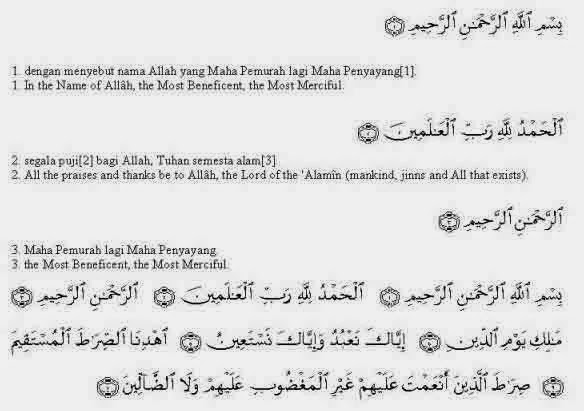 بِسْمِ ٱللَّهِ ٱلرَّحْمَـٰنِ ٱلرَّحِيمِ ١
1. dengan menyebut nama Allah yang Maha Pemurah lagi Maha Penyayang[1].
1. In the Name of Allâh, the Most Beneficent, the Most Merciful.
ٱلْحَمْدُ لِلَّهِ رَبِّ ٱلْعَـٰلَمِينَ ٢
2. segala puji[2] bagi Allah, Tuhan semesta alam[3]
2. All the praises and thanks be to Allâh, the Lord of the 'Alamîn (mankind, jinns and All that exists).
ٱلرَّحْمَـٰنِ ٱلرَّحِيمِ ٣
3. Maha Pemurah lagi Maha Penyayang.
3. the Most Beneficent, the Most Merciful.
بِسْمِ ٱللَّهِ ٱلرَّحْمَـٰنِ ٱلرَّحِيمِ ١ ٱلْحَمْدُ لِلَّهِ رَبِّ ٱلْعَـٰلَمِينَ ٢ ٱلرَّحْمَـٰنِ ٱلرَّحِيمِ ٣
مَـٰلِكِ يَوْمِ ٱلدِّينِ ٤ إِيَّاكَ نَعْبُدُ وَإِيَّاكَ نَسْتَعِينُ ٥ ٱهْدِنَا ٱلصِّرَٰطَ ٱلْمُسْتَقِيمَ
٦ صِرَٰطَ ٱلَّذِينَ أَنْعَمْتَ عَلَيْهِمْ غَيْرِ ٱلْمَغْضُوبِ عَلَيْهِمْ وَلَا ٱلضَّآلِّينَ ٧